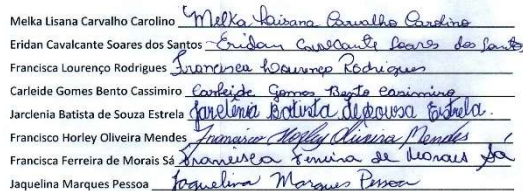 Melka Lisana Carvalho Carolino Melka Laisana Carvalho Carolino
Eridan Cavalcante Soares dos Santos Eridan Cavalcante Soares dos Santos
Francisca Lourenço Rodrigues Francisca Lourenço Rodrigues
Carleide Gomes Bento Cassimiro Carleide Gomes Bento Casimiro
Jarclenia Batista de Souza Estrela Jarclênia Batista de Sousa Estrela.
Francisco Horley Oliveira Mendes Francisco Horley Oliveira Mendes
Francisca Ferreira de Morais Sá Francisca Ferreira de Morais Sá
Jaquelina Marques Pessoa Jaquelina Marques Pessoa